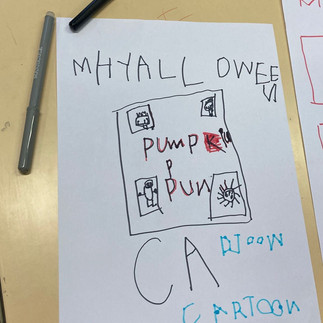 MHYALLOWEE
N
PUMPK
P
PUN
CA
DJOOW
CARTOON